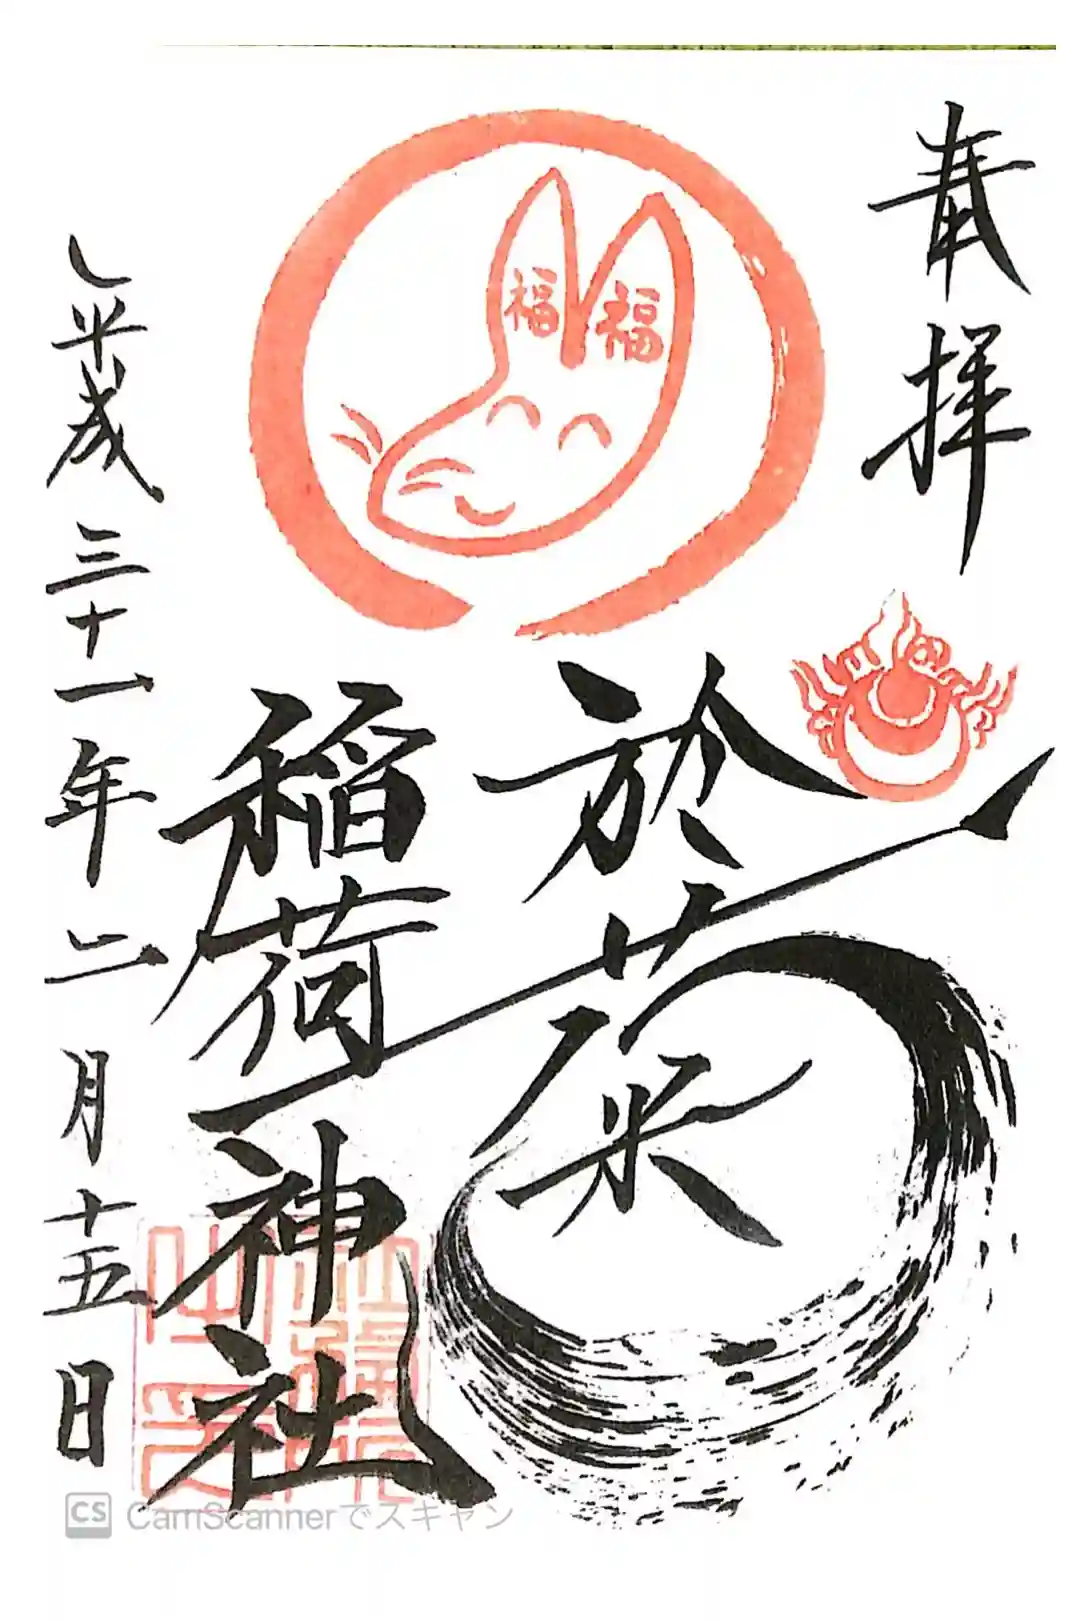 奉拝
福福
於菊
稲荷神社
平成三十一年二月十五日
CS CamScannerでスキャン